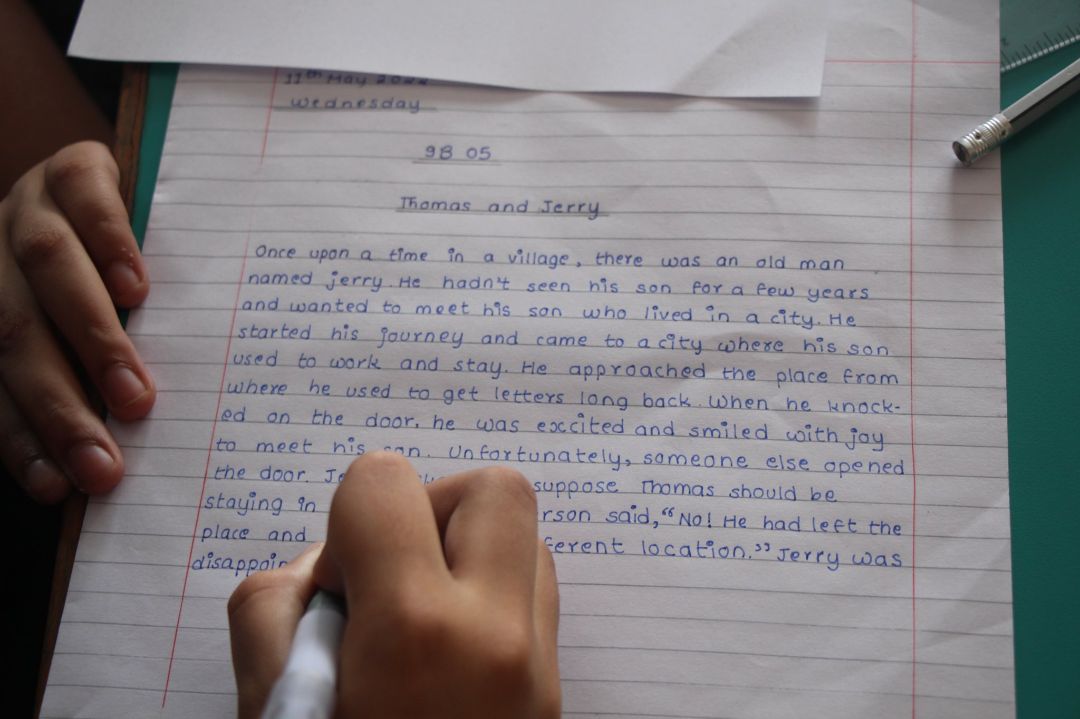 11th May 2022
Wednesday
9B 05
Thomas and Jerry
Once upon a time in a village, there was an old man
named jerry. He hadn't seen his son for a few years
and wanted to meet his son who lived in a city. He
started his journey and came to a city where his son
used to work and stay. He approached the place from
where he used to get letters long back. When he knock-
ed on the door, he was excited and smiled with joy
to meet his son. Unfortunately, someone else opened
the door. suppose Thomas should be
staying in said, "No! He had left the
place and location." Jerry was